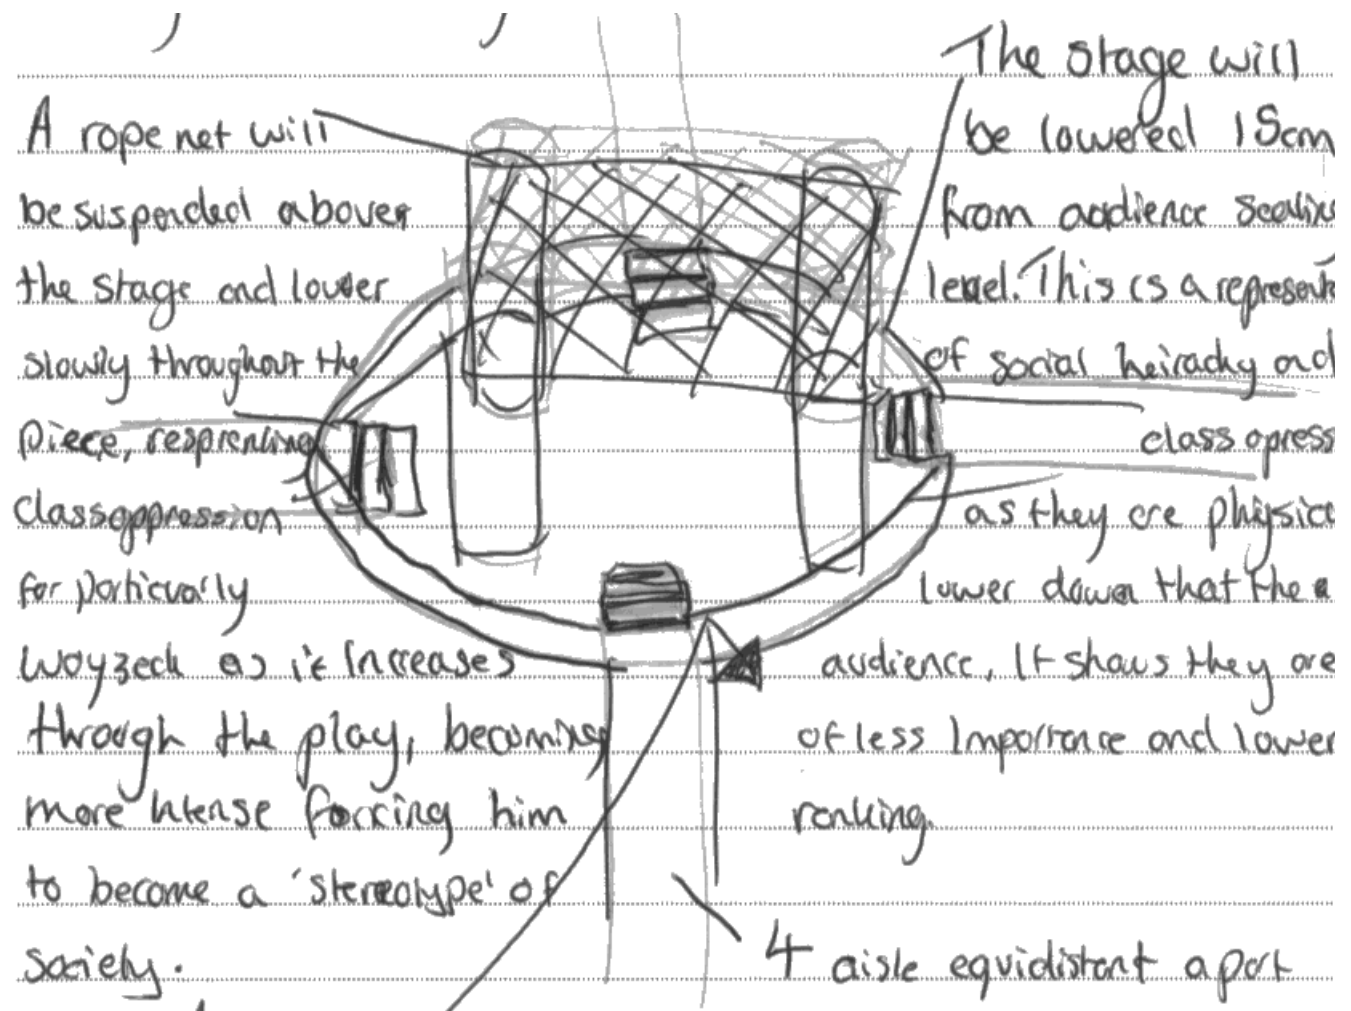 A rope net will
be suspended above
the stage and lower
slowly throughout the
piece, resprenting
class oppression
for particually
Woyzeck as it increases
through the play, becoming
more intense forcing him
to become a 'stereotype' of
society.
The stage will
be lowered 15cm
from audience
level. This is a represent
of social heirachy and
class opress
as they are physica
lower down that the
audience, It shows they are
of less importance and lower
ranking.
4 aisle equidistant apart